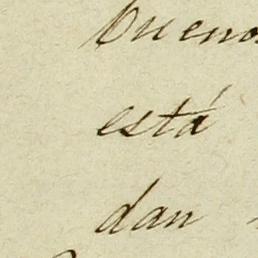 Bueno
está
dan